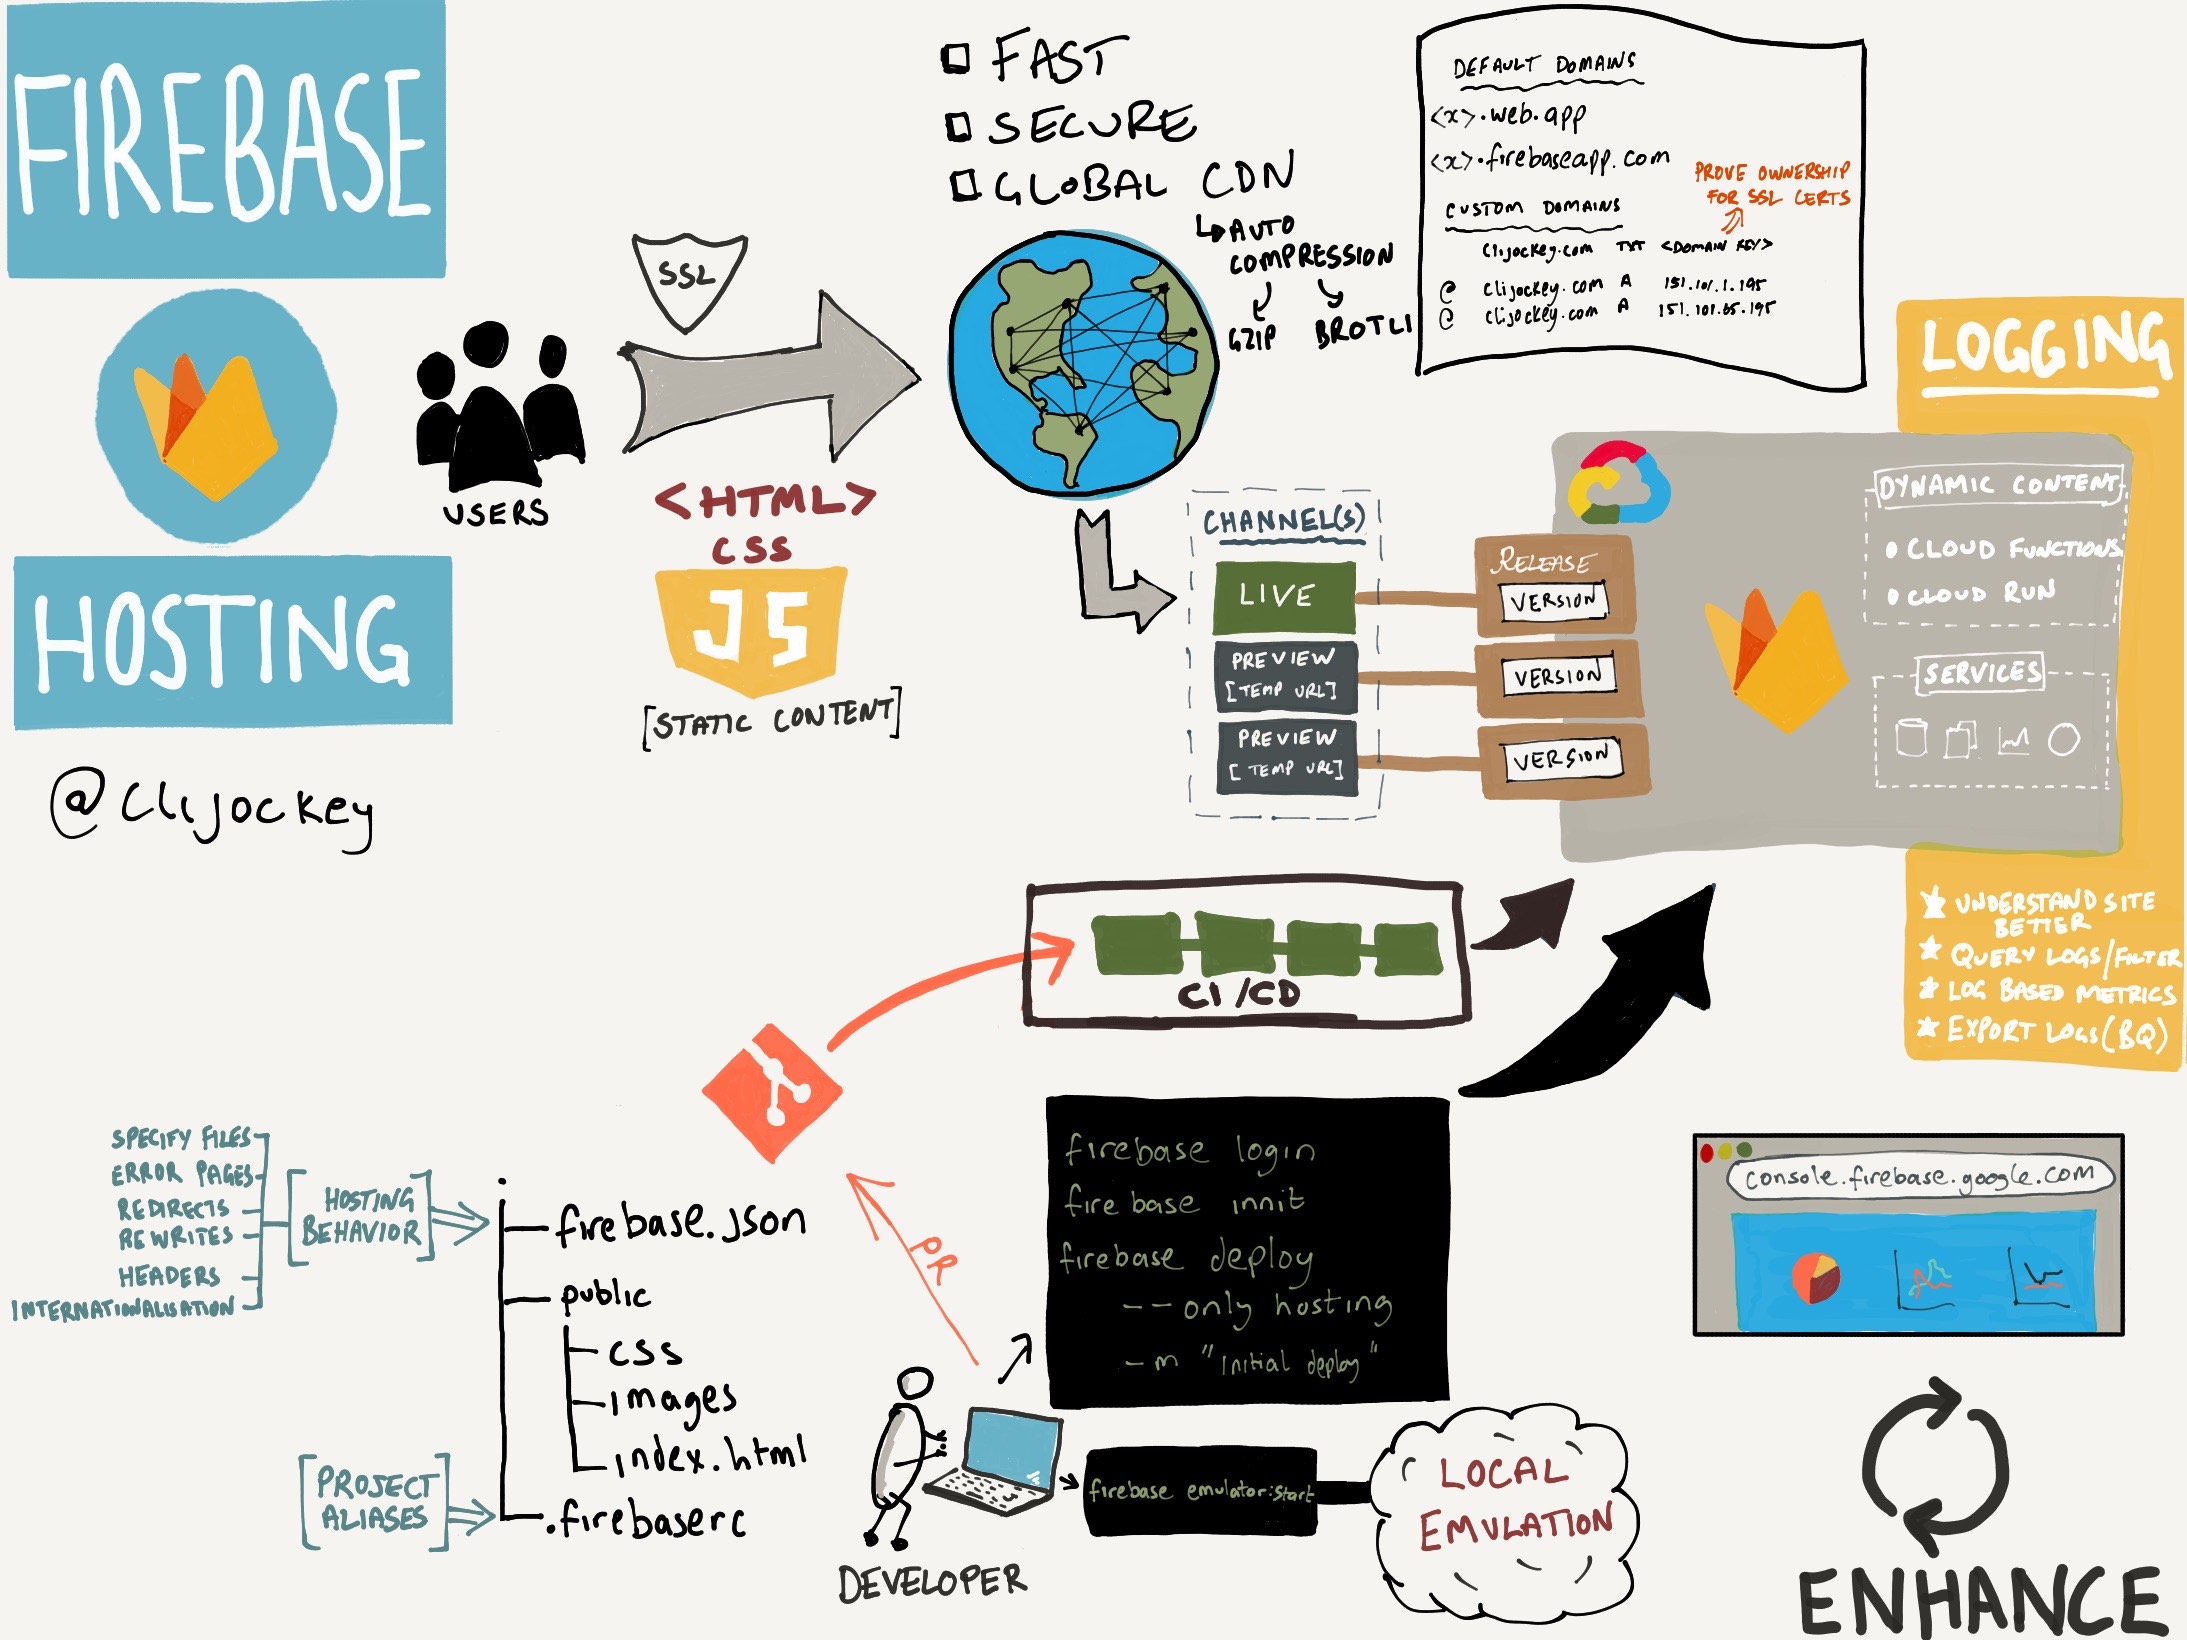 FIREBASE
HOSTING
@clijockey
USERS
SSL
<HTML>
CSS
JS
[STATIC CONTENT]
FAST
SECURE
GLOBAL CDN
AUTO
COMPRESSION
GZIP BROTLI
DEFAULT DOMAINS
<x>.web.app
<x>.firebaseapp.com
PROVE OWNERSHIP
FOR SSL CERTS
CUSTOM DOMAINS
clijockey.com TXT <DOMAIN KEY>
@ clijockey.com A 151.101.1.195
@ clijockey.com A 151.101.65.195
CHANNEL(S)
LIVE
PREVIEW
[TEMP URL]
PREVIEW
[TEMP URL]
RELEASE
VERSION
VERSION
VERSION
DYNAMIC CONTENT
CLOUD FUNCTIONS
CLOUD RUN
SERVICES
LOGGING
UNDERSTAND SITE
BETTER
QUERY LOGS/FILTER
LOG BASED METRICS
EXPORT LOGS (BQ)
CI/CD
SPECIFY FILES
ERROR PAGES
REDIRECTS
REWRITES
HEADERS
INTERNATIONALISATION
[HOSTING
BEHAVIOR]
.
firebase.json
public
css
images
index.html
.firebaserc
[PROJECT
ALIASES]
PR
DEVELOPER
firebase login
firebase innit
firebase deploy
--only hosting
-m "initial deploy"
firebase emulator:start
LOCAL
EMULATION
console.firebase.google.com
ENHANCE